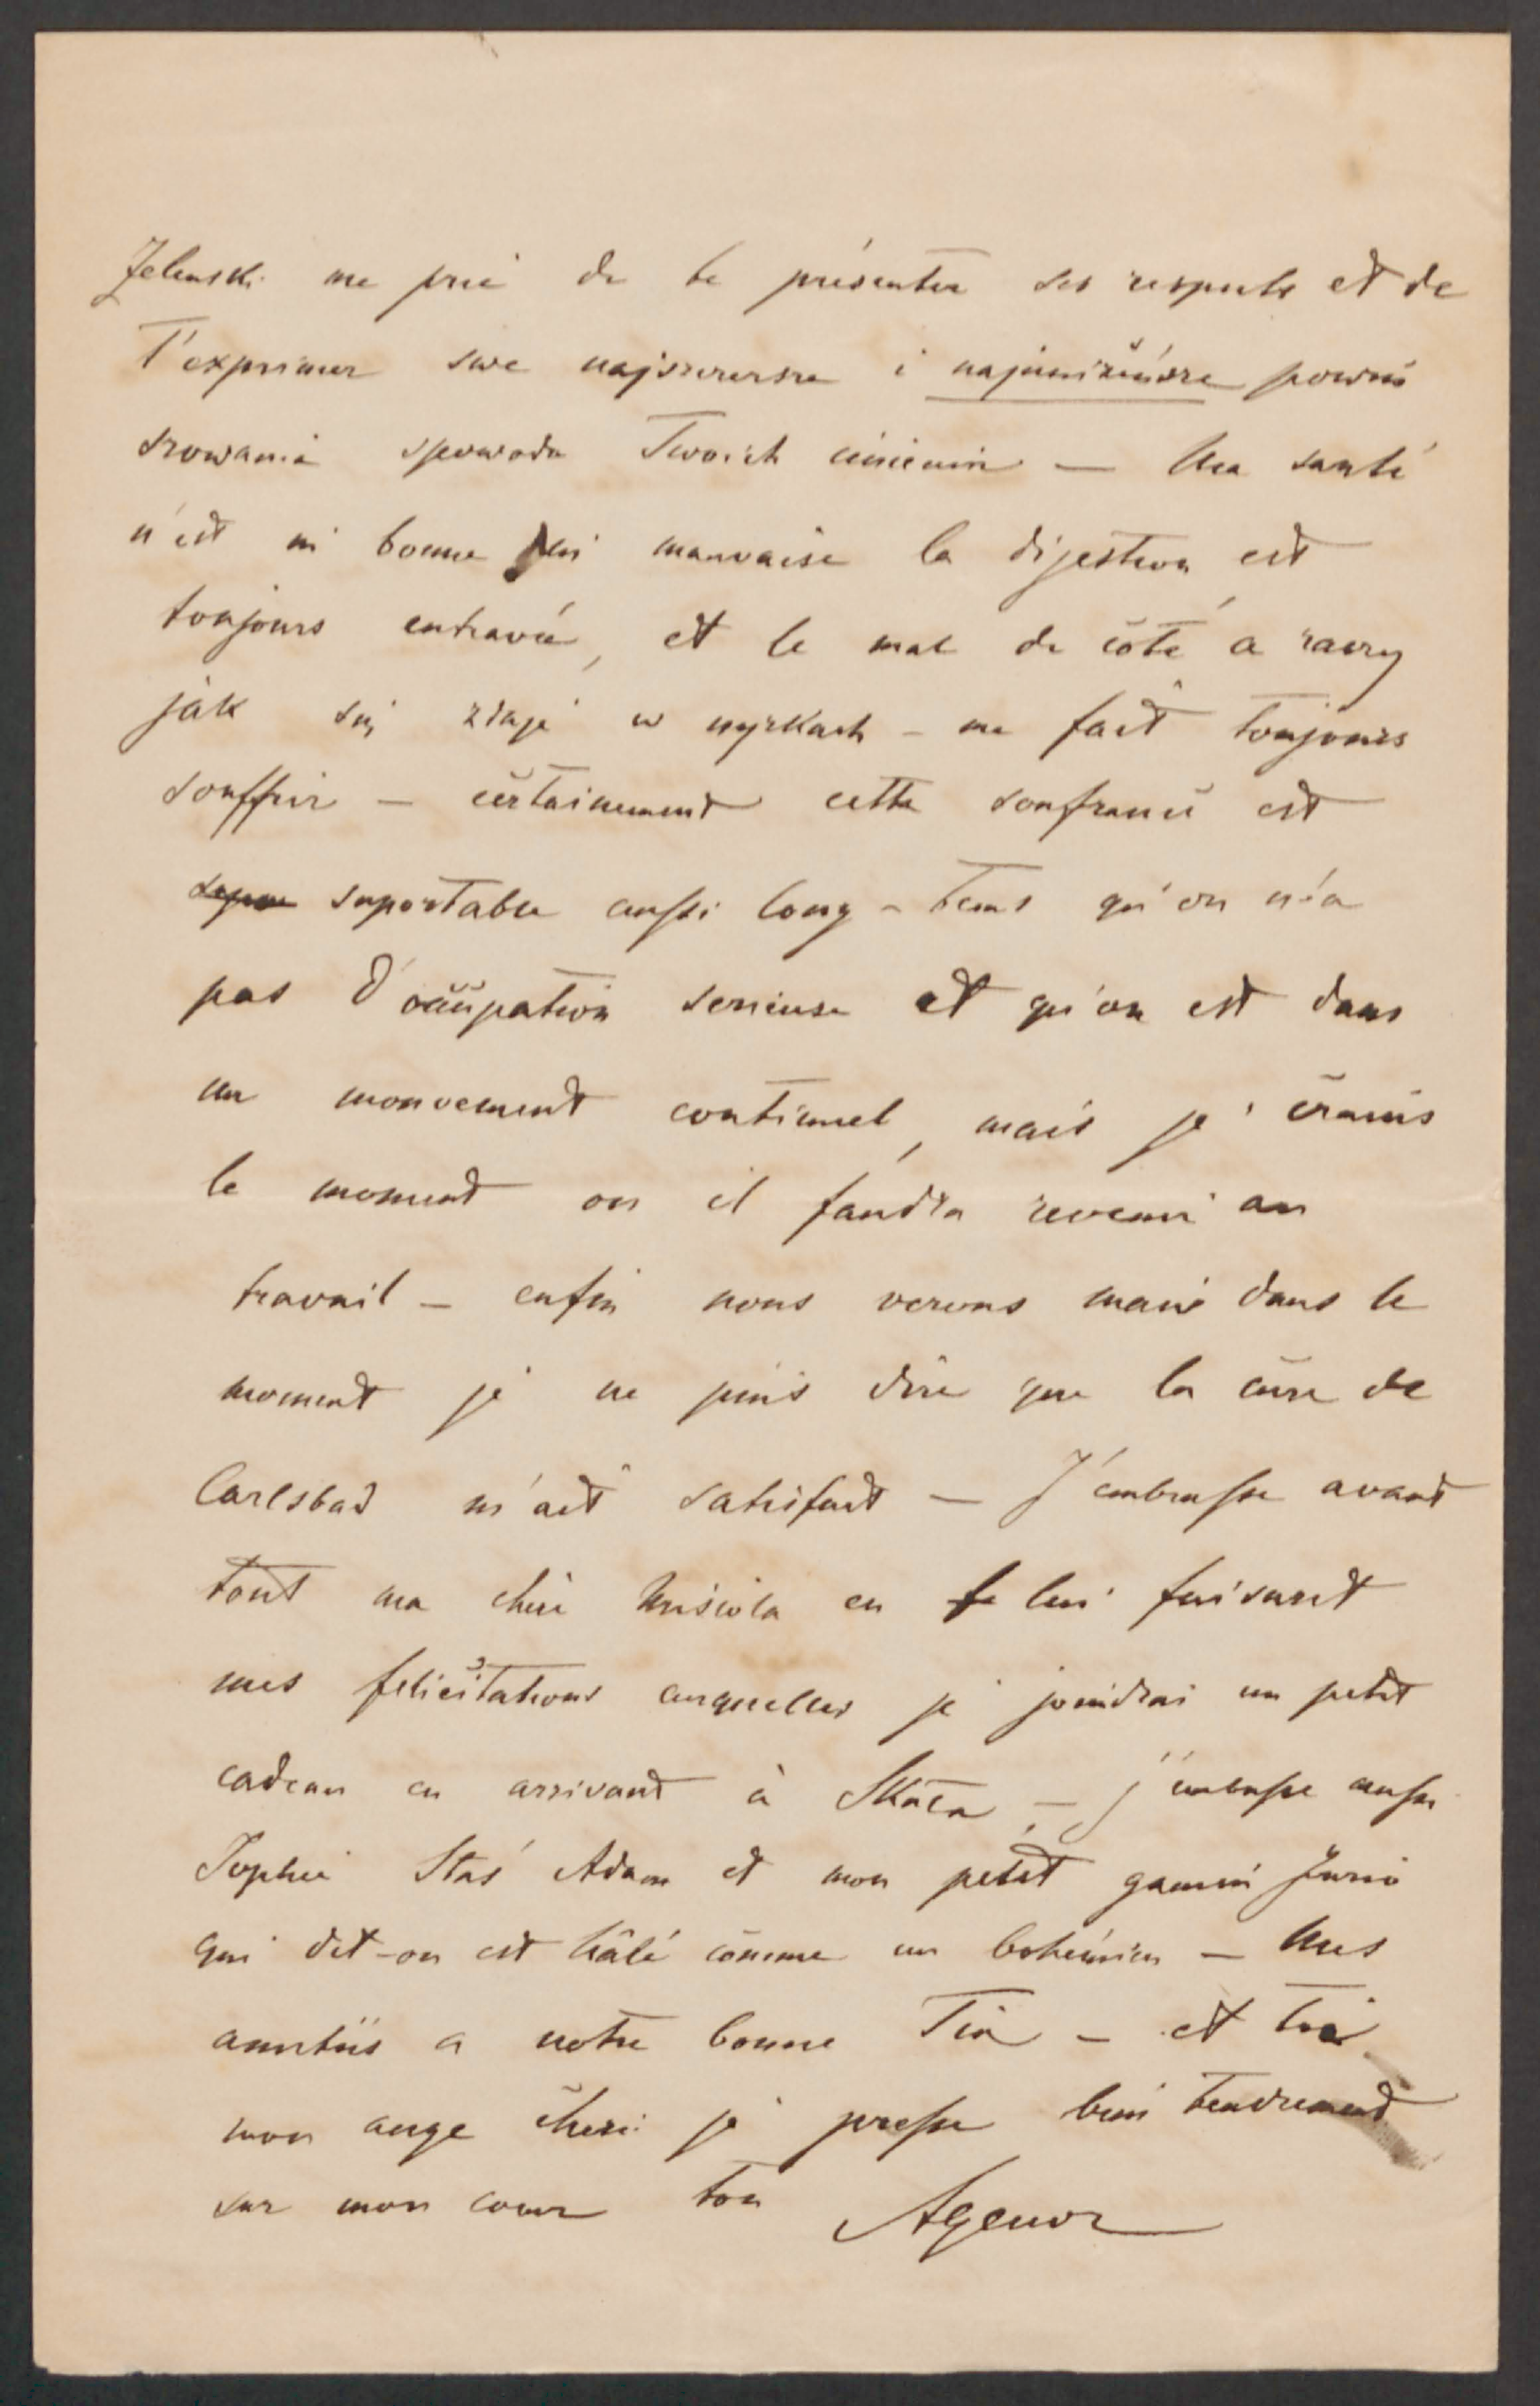 Zelenski me prie de te présenter ses respects et de
T'exprimer swe najszczersze i najuniżeńsze powin
szowania spowodu Twoich imienin — Ma santé
n'est ni bonne ni mauvaise la digestion est
toujours entravée, et le mal de côté a raczy
jak się zdaje w nyrkach – me fait toujours
souffrir — certainement cette soufrance est
suportable aussi long-tems qu'on n'a
pas d'occupation serieuse et qu'on est dans
un mouvement continuel, mais je crains
le moment ou il faudra revenir au
travail — enfin nous verons mais dans le
moment je ne puis dire que la cure de
Carlsbad m'ait satisfait — J'embrasse avant
tout ma chère Krisiola en lui faisant
mes felicitations auquelles je joindrai un petit
cadeau en arrivant à Skała — j'embasse aussi
Sophie Staś Adam et mon petit gamin Jurio
qui dit-on est hâlé comme un bohémien — Mes
amitiés a notre bonne Tia — et toi
mon ange cheri je presse bien tendrement
sur mon coeur ton Agenor